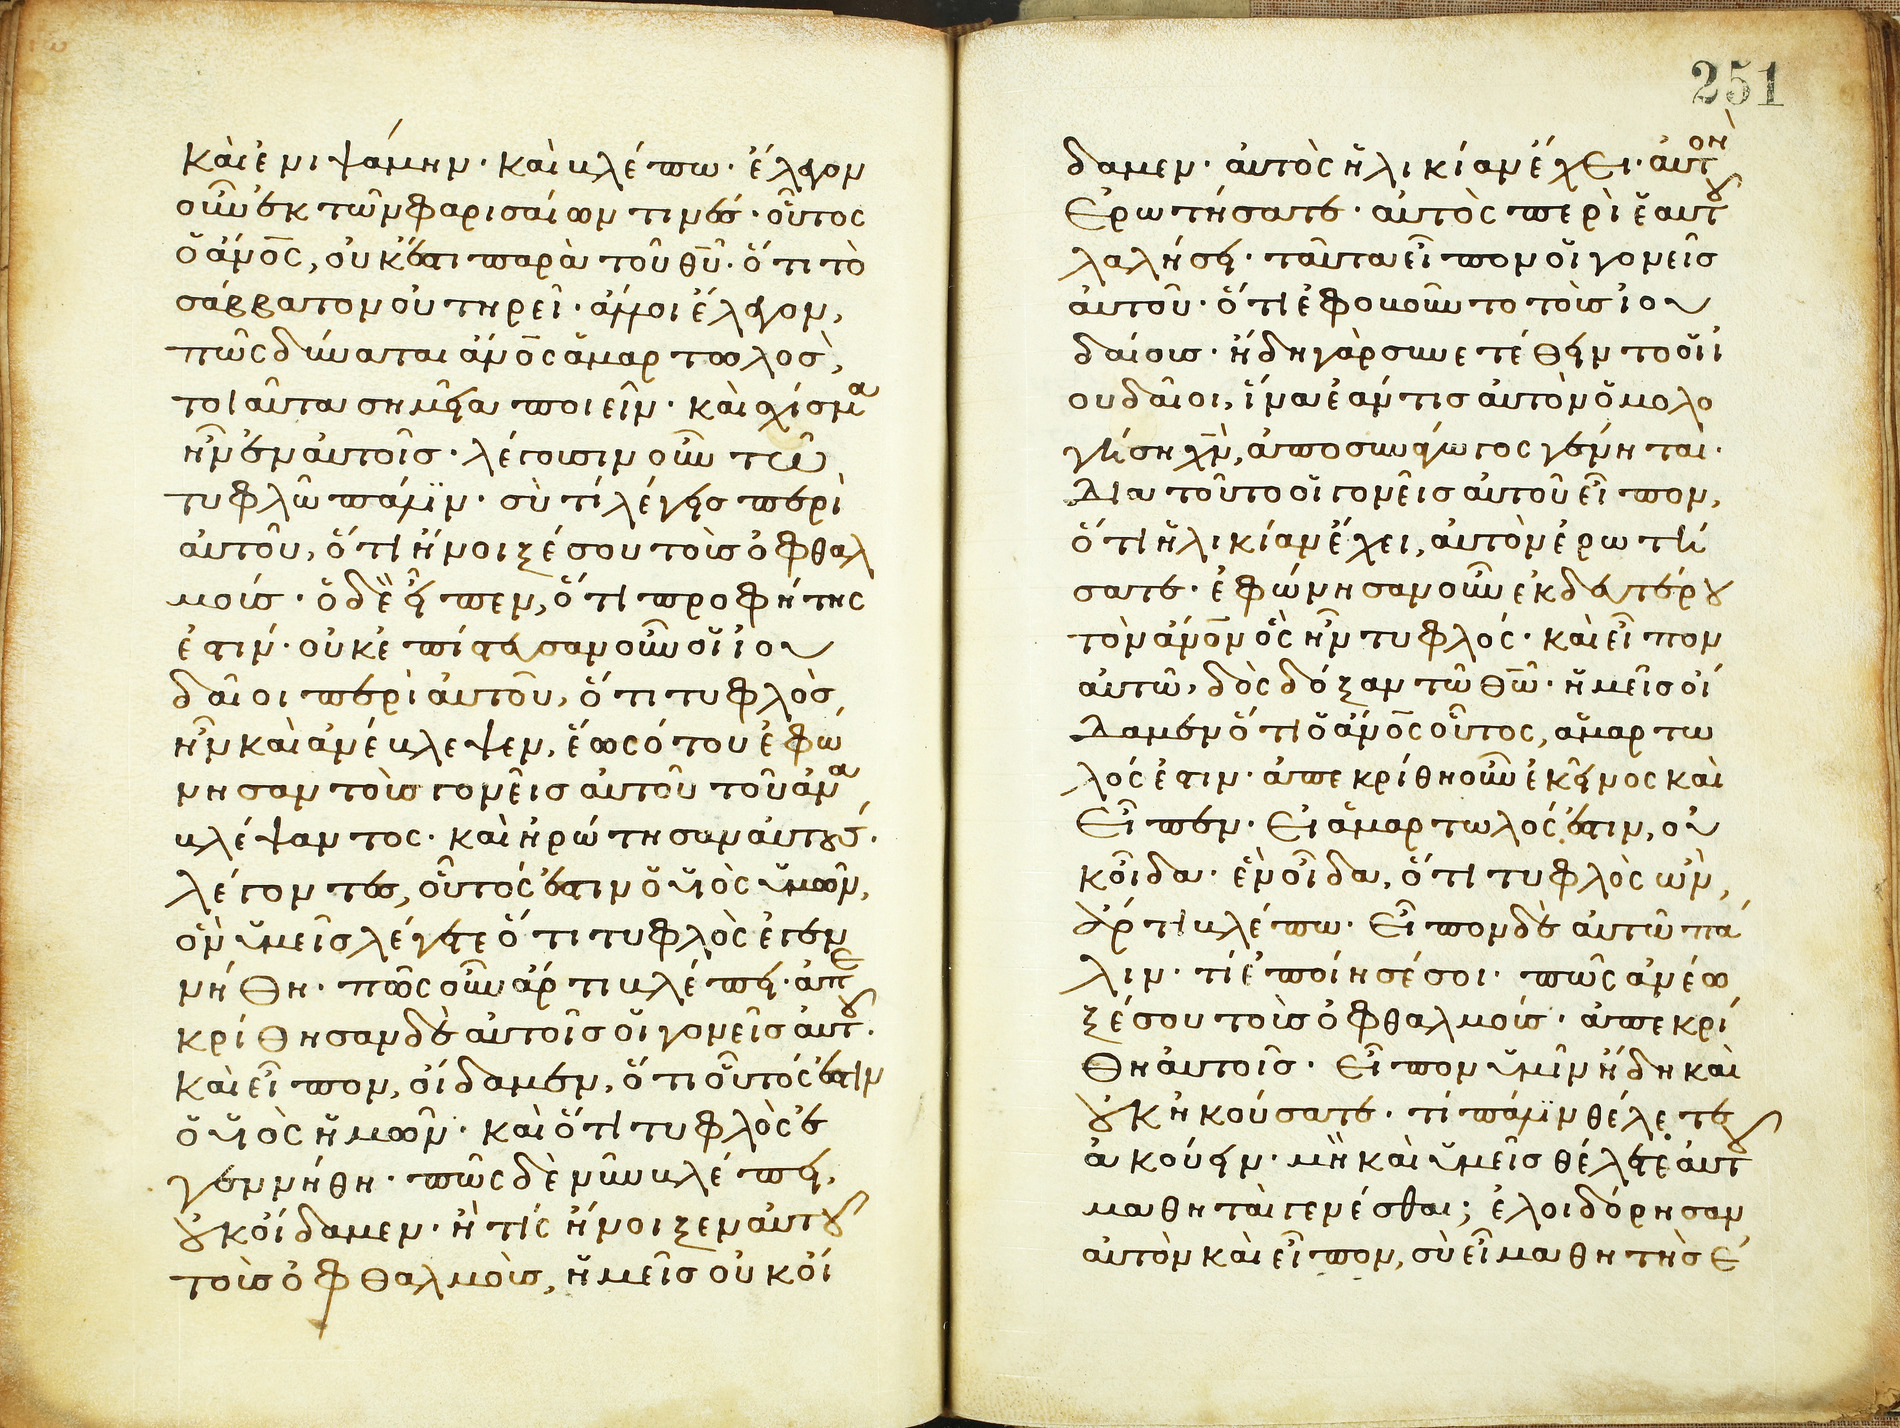 καὶ ἐνιψάμην· καὶ βλέπω· ἔλεγον
οὖν ἐκ τῶν φαρισαίων τινές· οὗτος
ὁ ἄν̅ο̅ς, οὐκ ἔστι παρὰ τοῦ θ̅υ̅· ὅτι τὸ
σάββατον οὐ τηρεῖ· ἄλλοι ἔλεγον,
πῶς δύναται ἄν̅ο̅ς ἁμαρτωλὸσ,
τοιαῦτα σημεῖα ποιεῖν· καὶ σχίσμα
ἦν ἐν αὐτοῖσ· λέγουσιν οὖν τῶ
τυφλῶ πάλϊν· σὺ τί λέγεισ περὶ
αὐτοῦ, ὅτι ἤνοιξέ σου τοὺσ ὀφθαλ
μούσ· ὁ δὲ εἶπεν, ὅτι προφήτης
ἐστιν· οὐκ ἐπίστευσαν οὖν οἱ ἰου
δαῖοι περὶ αὐτοῦ, ὅτι τυφλὸσ
ἦν καὶ ἀνέβλεψεν, ἕως ὅτου ἐφώ
νησαν τοὺσ γονεῖσ αὐτοῦ τοῦ ἀνα
βλέψαντος· καὶ ἠρώτησαν αὐτούσ·
λέγοντεσ, οὗτός ἐστιν ὁ υἱὸς ὑμῶν,
ὃν ὑμεῖσ λέγετε ὅτι τυφλὸς ἐγεν
νήθη· πῶς οὖν ἄρτι βλέπει· ἀπε
κρίθησαν δὲ αὐτοῖσ οἱ γονεῖσ αὐτοῦ·
καὶ εἶπον, οἴδαμεν, ὅτι οὗτός ἐστιν
ὁ υἱὸς ἡμῶν· καὶ ὅτι τυφλὸς ἐ
γεννήθη· πῶς δὲ νῦν βλέπει,
οὐκ οἴδαμεν· ἢ τίς ἤνοιξεν αὐτοῦ
τοὺσ ὀφθαλμοὺσ, ἡμεῖσ οὐκ οἴ
251
δαμεν· αὐτὸς ἡλικίαν ἔχει· αὐτὸν
ἐρωτήσατε· αὐτὸς περὶ ἑαυτοῦ
λαλήσει· ταῦτα εἶπον οἱ γονεῖσ
αὐτοῦ· ὅτι ἐφοβοῦντο τοὺσ ἰου
δαίουσ· ἤδη γὰρ συνετέθειντο οἱ ἰ
ουδαῖοι, ἵνα ἐάν τισ αὐτὸν ὁμολο
γήση χ̅ν̅, ἀποσυνάγωγος γένηται·
Διὰ τοῦτο οἱ γονεῖσ αὐτοῦ εἶπον,
ὅτι ἡλικίαν ἔχει, αὐτὸν ἐρωτή
σατε· ἐφώνησαν οὖν ἐκ δευτέρου
τὸν ἄν̅ο̅ν ὃς ἦν τυφλός· καὶ εἶπον
αὐτῶ, δὸς δόξαν τῶ θ̅ω̅· ἡμεῖσ οἴ
δαμεν ὅτι ὁ ἄν̅ο̅ς οὗτος, ἁμαρτω
λός ἐστιν· ἀπεκρίθη οὖν ἐκεῖνος καὶ
εἶπεν· Εἰ ἁμαρτωλός ἐστιν, οὐ
κ οἶδα· ἓν οἶδα, ὅτι τυφλὸς ὢν,
ἄρτι βλέπω· Εἶπον δὲ αὐτῶ πά
λιν· τί ἐποίησέ σοι· πῶς ἀνέω
ξέ σου τοὺσ ὀφθαλμούσ· ἀπεκρί
θη αὐτοῖσ· Εἶπον ὑμῖν ἤδη καὶ
οὐκ ἠκούσατε· τί πάλϊν θέλετε
ἀκούειν· μὴ καὶ ὑμεῖσ θέλετε αὐτοῦ
μαθηταὶ γενέσθαι; ἐλοιδόρησαν
αὐτὸν καὶ εἶπον, σὺ εἶ μαθητὴσ ἐ